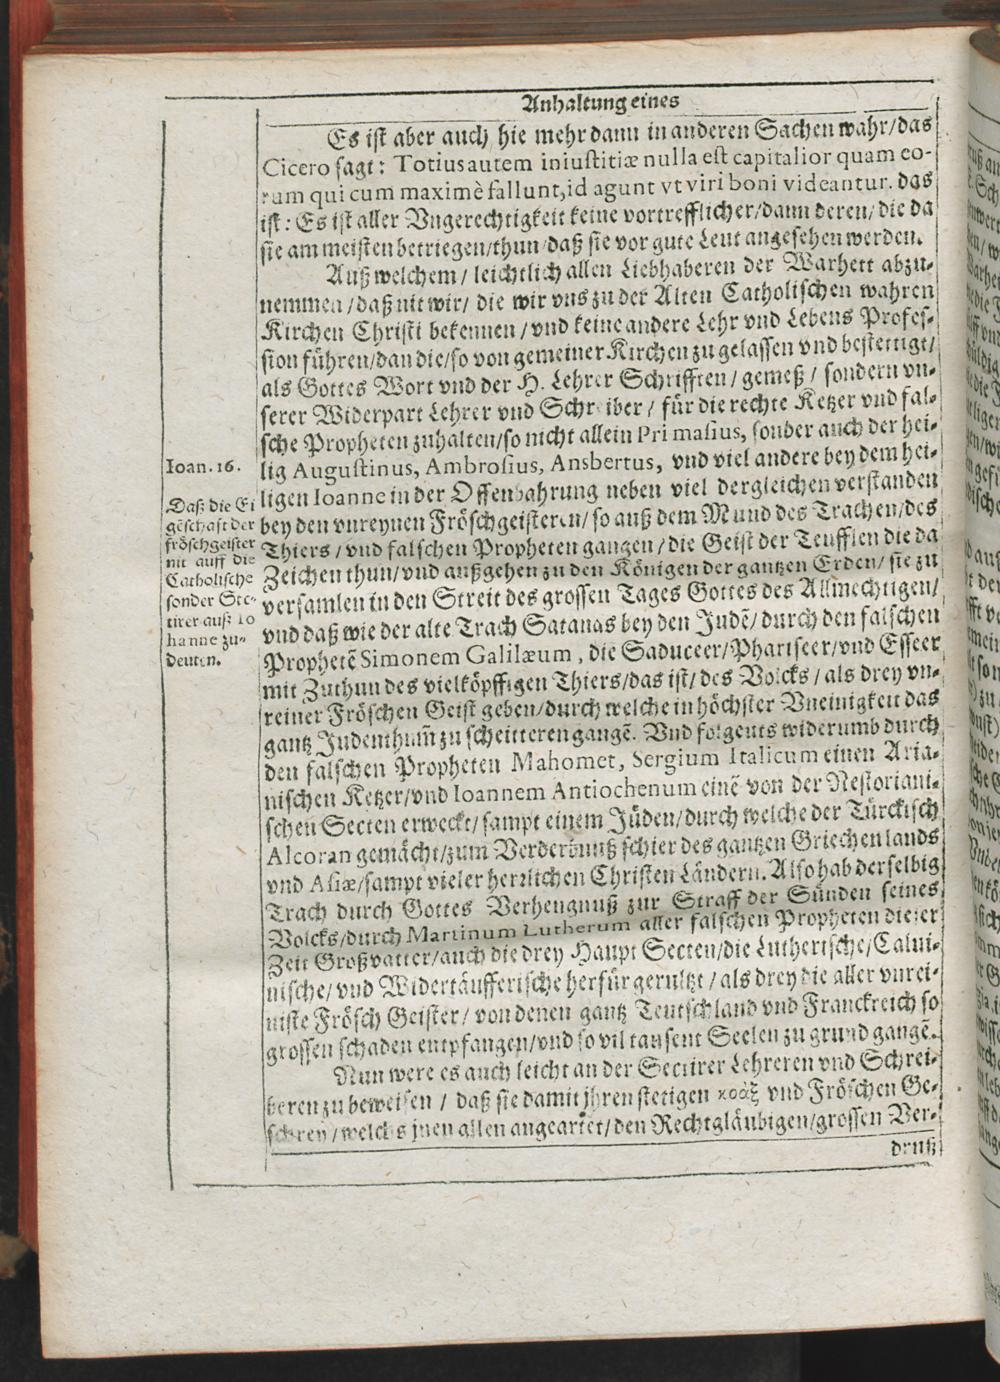 Anhaltung eines
Es ist aber auch hie mehr dann in anderen Sachen wahr/das
Cicero sagt: Totius autem iniustitiæ nulla est capitalior quam eo-
rum qui cum maximè fallunt, id agunt vt viri boni videantur. das
ist: Es ist aller Vngerechtigkeit keine vortrefflicher/dann deren/die da
sie am meisten betriegen/thun daß sie vor gute Leut angesehen werden.
Auß welchem/ leichtlich allen Liebhaberen der Warheit abzu-
nemmen/daß nit wir/ die wir vns zu der Alten Catholischen wahren
Kirchen Christi bekennen/vnd keine andere Lehr vnd Lebens Profes-
sion führen/dan die/so von gemeiner Kirchen zu gelassen vnd bestettigt/
als Gottes Wort vnd der H. Lehrer Schrifften/ gemeß/ sondern vn-
serer Widerpart Lehrer vnd Schreiber/ für die rechte Ketzer vnd fal-
sche Propheten zuhalten/so nicht allein Primasius, sonder auch der hei-
lig Augustinus, Ambrosius, Ansbertus, vnd viel andere bey dem hei-
ligen Ioanne in der Offenbahrung neben viel dergleichen verstanden
bey den vnreynen Fröschgeisteren/so auß dem Mund des Trachen/des
Thiers/vnd falschen Propheten gangen/die Geist der Teufflen die da
Zeichen thun/vnd außgehen zu den Königen der gantzen Erden/ sie zu
versamlen in den Streit des grossen Tages Gottes des Allmechtigen/
vnd daß wie der alte Trach Satanas bey den Judē/durch den falschen
Prophetē Simonem Galilæum, die Saduceer/Phariseer/vnd Esseer
mit Zuthun des vielköpffigen Thiers/das ist/des Volcks/als drey vn-
reiner Fröschen Geist geben/durch welche in höchster Vneinigkeit das
gantz Judenthum̃ zu scheitteren gangē. Vnd folgents widerumb durch
den falschen Propheten Mahomet, Sergium Italicum einen Aria-
nischen Ketzer/vnd Ioannem Antiochenum einē von der Nestoriani-
schen Secten erweckt/sampt einem Jüden/durch welche der Türckisch
Alcoran gemacht/zum Verderbnuß schier des gantzen Griechenlands
vnd Asiæ/sampt vieler herrlichen Christen Ländern. Also hab derselbig
Trach durch Gottes Verhengnuß zur Straff der Sünden seines
Volcks/durch Martinum Lutherum aller falschen Propheten dieser
Zeit Großvatter/auch die drey Haupt Secten/die Lutherische/Calui-
nische/vnd Widertäufferische herfür gerültzt/als drey die aller vnrei-
niste Frösch Geister/von denen gantz Teutschland vnd Franckreich so
grossen schaden entpfangen/vnd so vil tausent Seelen zu grund gangē.
Nun were es auch leicht an der Sectirer Lehreren vnd Schrei-
beren zu beweisen/ daß sie damit jhren stetigen κοάξ vnd Fröschen Ge-
schrey/welchs jnen allen angeartet/den Rechtgläubigen/grossen Ver-
druß
Ioan. 16.
Daß die Ei
gēschaft der
fröschgeister
nit auff die
Catholische
sonder Sec-
tirer auß Io
hanne zu-
deuten.